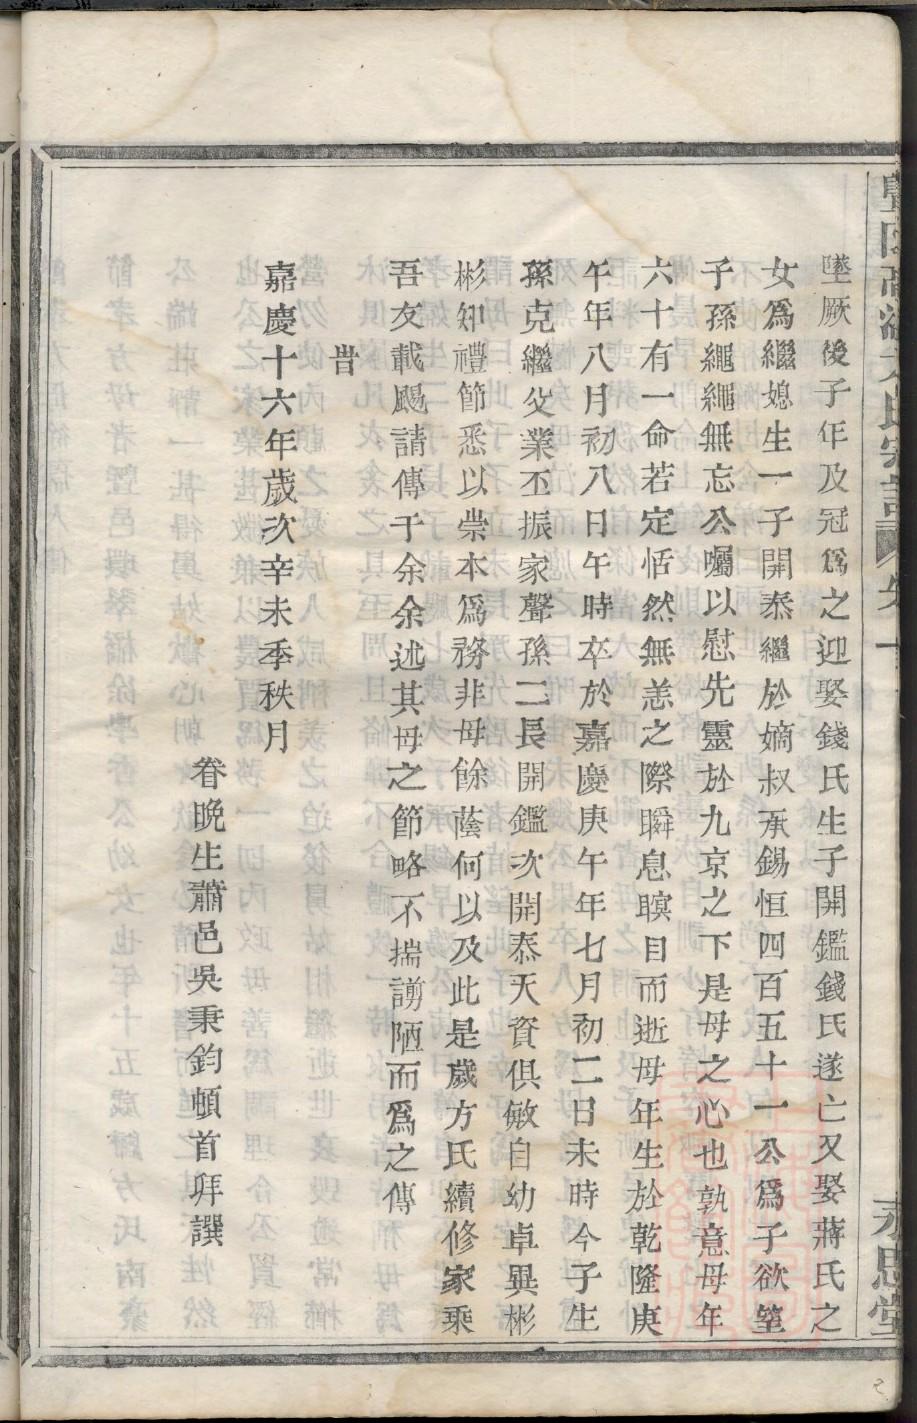 墜厥後子年及冠爲之迎娶錢氏生子開鑑錢氏遂亡又娶蔣氏之
女爲繼媳生一子開泰繼於嫡叔承錫恒四百五十一公爲子欲筆
子孫繩繩無忘公囑以慰先靈於九京之下是母之心也孰意母年
六十有一命若定恬然無恙之際瞬息瞑目而逝母年生於乾隆庚
午年八月初八日午時卒於嘉慶庚午年七月初二日未時今子生
孫克繼父業丕振家聲孫二長開鑑次開泰天資俱敏自幼卓異彬
彬知禮節悉以崇本爲務非母餘蔭何以及此是歲方氏續修家乘
吾友載颺請傳于余余述其母之節略不揣謭陋而爲之傳
旹
嘉慶十六年歲次辛未季秩月
眷晚生蕭邑吳秉鈞頓首拜譔
氏宗譜
卷十
永思堂